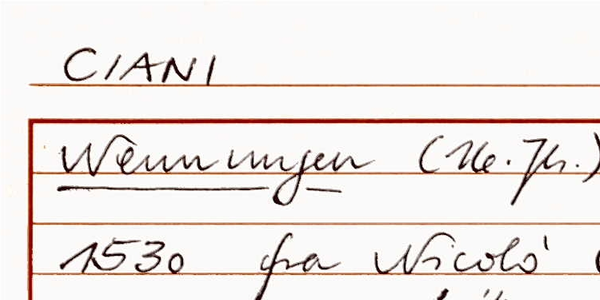 CIANI
Nennungen (16. Jh.)
1530 fra Nicolò